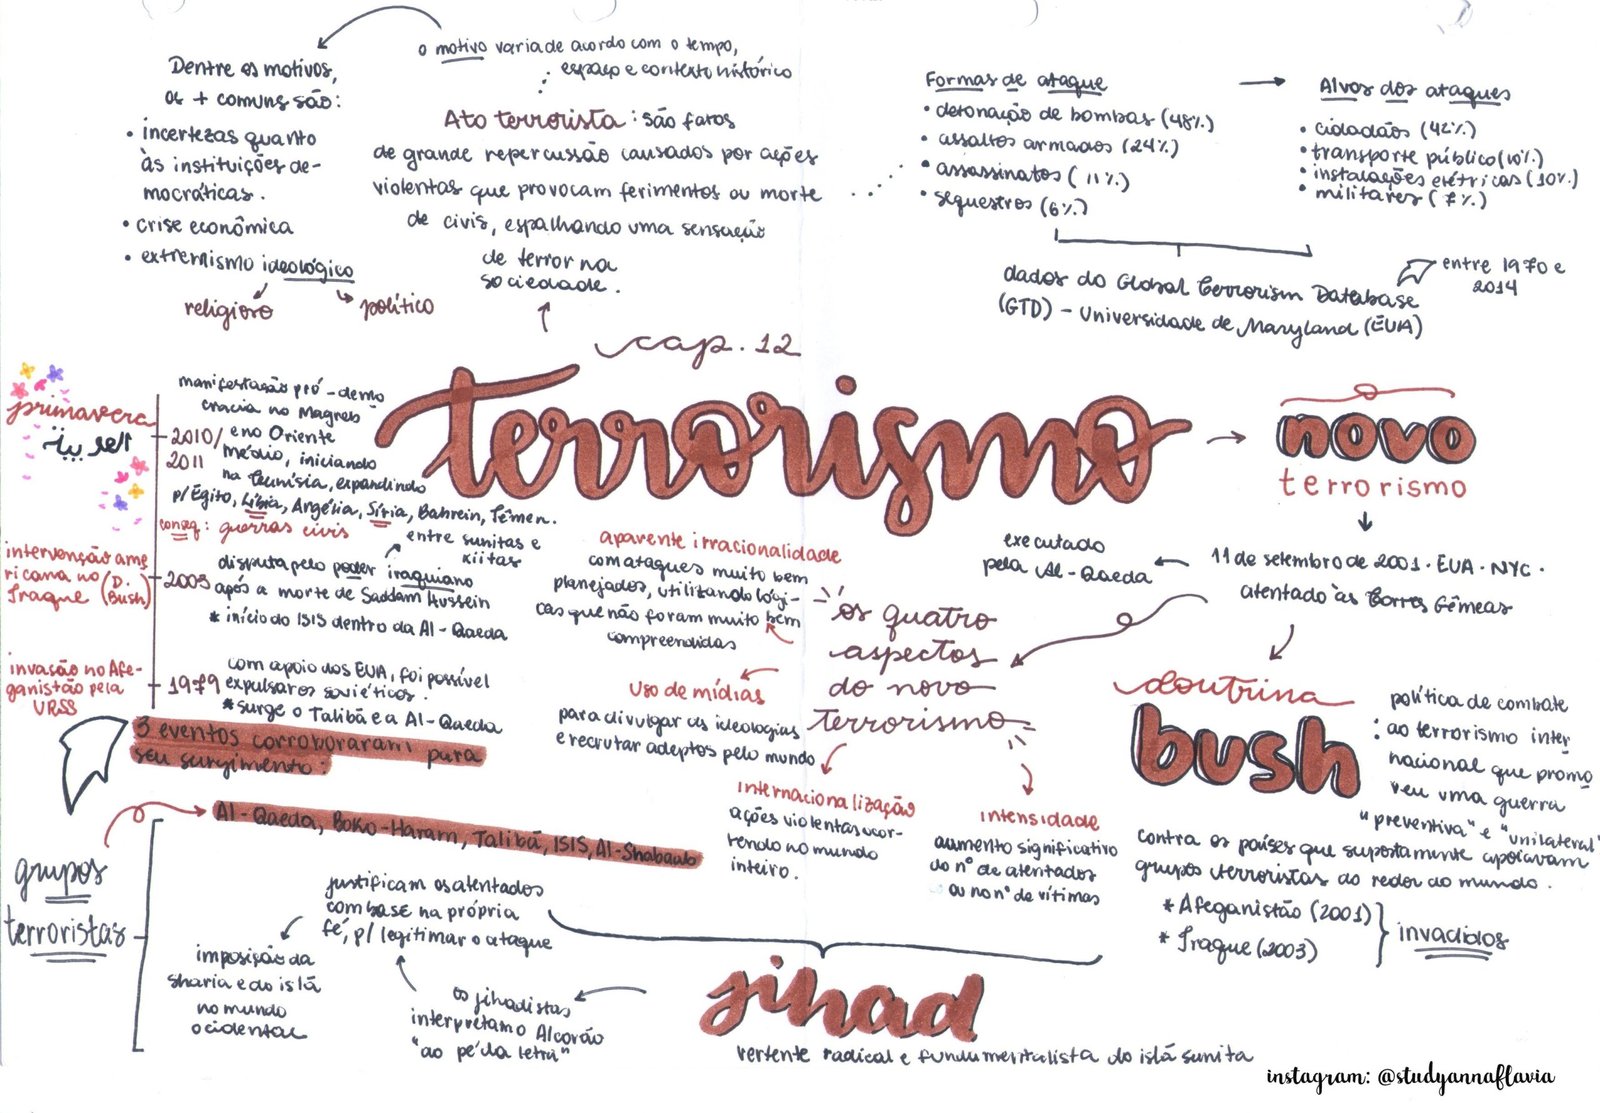 o motivo varia de acordo com o tempo,
espaço e contexto histórico
Dentre os motivos,
os + comuns são:
• incertezas quanto
às instituições de-
mocráticas.
• crise econômica
• extremismo ideológico
religioso
político
Ato terrorista: são fatos
de grande repercussão causados por ações
violentas que provocam ferimentos ou morte
de civis, espalhando uma sensação
de terror na
sociedade.
Formas de ataque
• detonação de bombas (48%)
• assaltos armados (24%)
• assassinatos (11%)
• sequestros (6%)
Alvos dos ataques
• cidadãos (42%)
• transporte público (10%)
• instalações elétricas (10%)
• militares (7%)
dados do Global Terrorism Database
(GTD) - Universidade de Maryland (EUA)
entre 1970 e
2014
cap. 12
terrorismo
o
novo
terrorismo
11 de setembro de 2001 · EUA · NYC ·
atentado às Torres Gêmeas
executado
pela Al-Qaeda
os quatro
aspectos
do novo
terrorismo
aparente irracionalidade
com ataques muito bem
planejados, utilizando lógi-
cas que não foram muito bem
compreendidas
uso de mídias
para divulgar as ideologias
e recrutar adeptos pelo mundo
internacionalização
ações violentas ocor-
rendo no mundo
inteiro.
intensidade
aumento significativo
do nº de atentados
ou no nº de vítimas
doutrina
bush
política de combate
: ao terrorismo inter
nacional que promo
veu uma guerra
"preventiva" e "unilateral"
contra os países que supostamente apoiavam
grupos terroristas ao redor do mundo.
* Afeganistão (2001)
* Iraque (2003)
invadidos
primavera
العربية
2010/
2011
manifestação pró-demo
cracia no Magreb
e no Oriente
Médio, iniciando
na Tunísia, expandindo
p/ Egito, Líbia, Argélia, Síria, Bahrein, Iêmen.
conseq: guerras civis
entre sunitas e
xiitas
intervenção ame
ricana no (D.
Iraque Bush)
2003
disputa pelo poder iraquiano
após a morte de Saddam Hussein
* início do ISIS dentro da Al-Qaeda
invasão no Afe-
ganistão pela
URSS
1979
com apoio dos EUA, foi possível
expulsar os soviéticos.
* surge o Talibã e a Al-Qaeda
3 eventos corroboraram para
seu surgimento:
grupos
terroristas
Al-Qaeda, Boko-Haram, Talibã, ISIS, Al-Shabaab
justificam os atentados
com base na própria
fé, p/ legitimar o ataque
imposição da
sharia e do islã
no mundo
ocidental
os jihadistas
interpretam o Alcorão
"ao pé da letra"
jihad
vertente radical e fundamentalista do islã sunita
instagram: @studyannaflavia